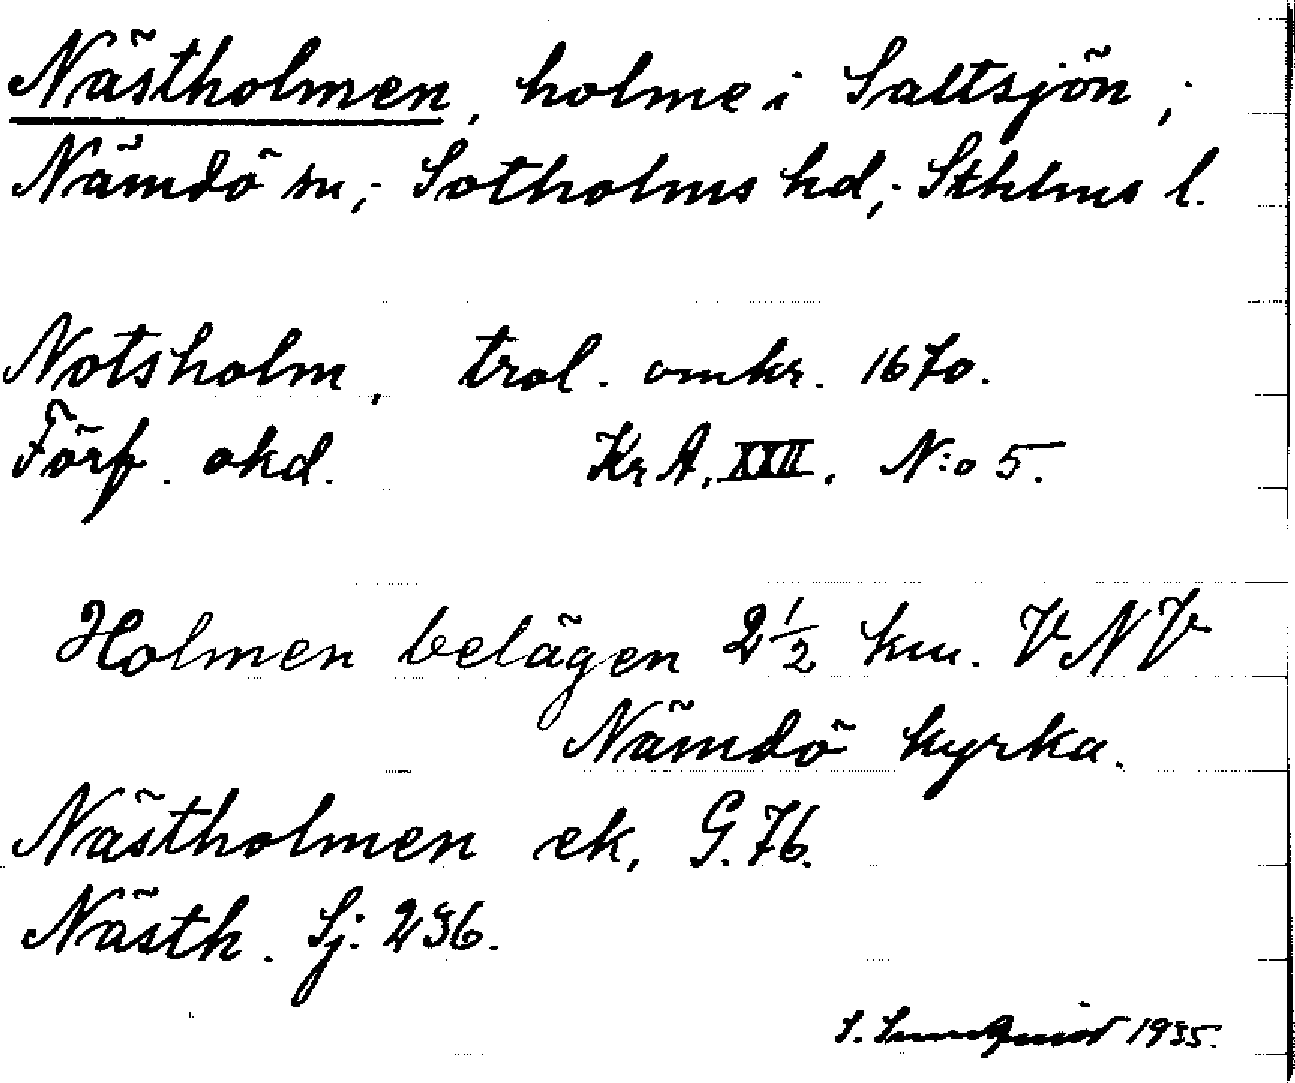 Nästholmen, holme i Saltsjön,;
Nämdö sn,; Sotholms hd,; Sthlms l.
Notsholm, trol. omkr. 1670.
Förf. okd. Kr A. XXII. N:o 5.
Holmen belägen 2 1/2 km. VNV
Nämdö kyrka.
Nästholmen ek, G. 76.
Nästh. Sj. 236.
S. 1935.